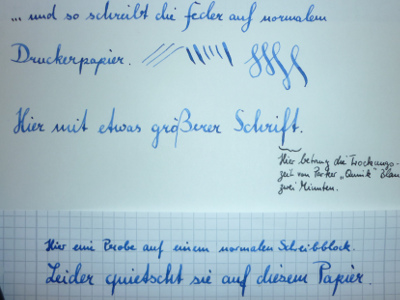 ... und so schreibt die Feder auf normalem
Druckerpapier.
Hier mit etwas größerer Schrift.
Hier betrug die Trocknungs-
zeit von Parker „Quink“ Blau
zwei Minuten.
Hier eine Probe auf einem normalen Schreibblock.
Leider quietscht sie auf diesem Papier.